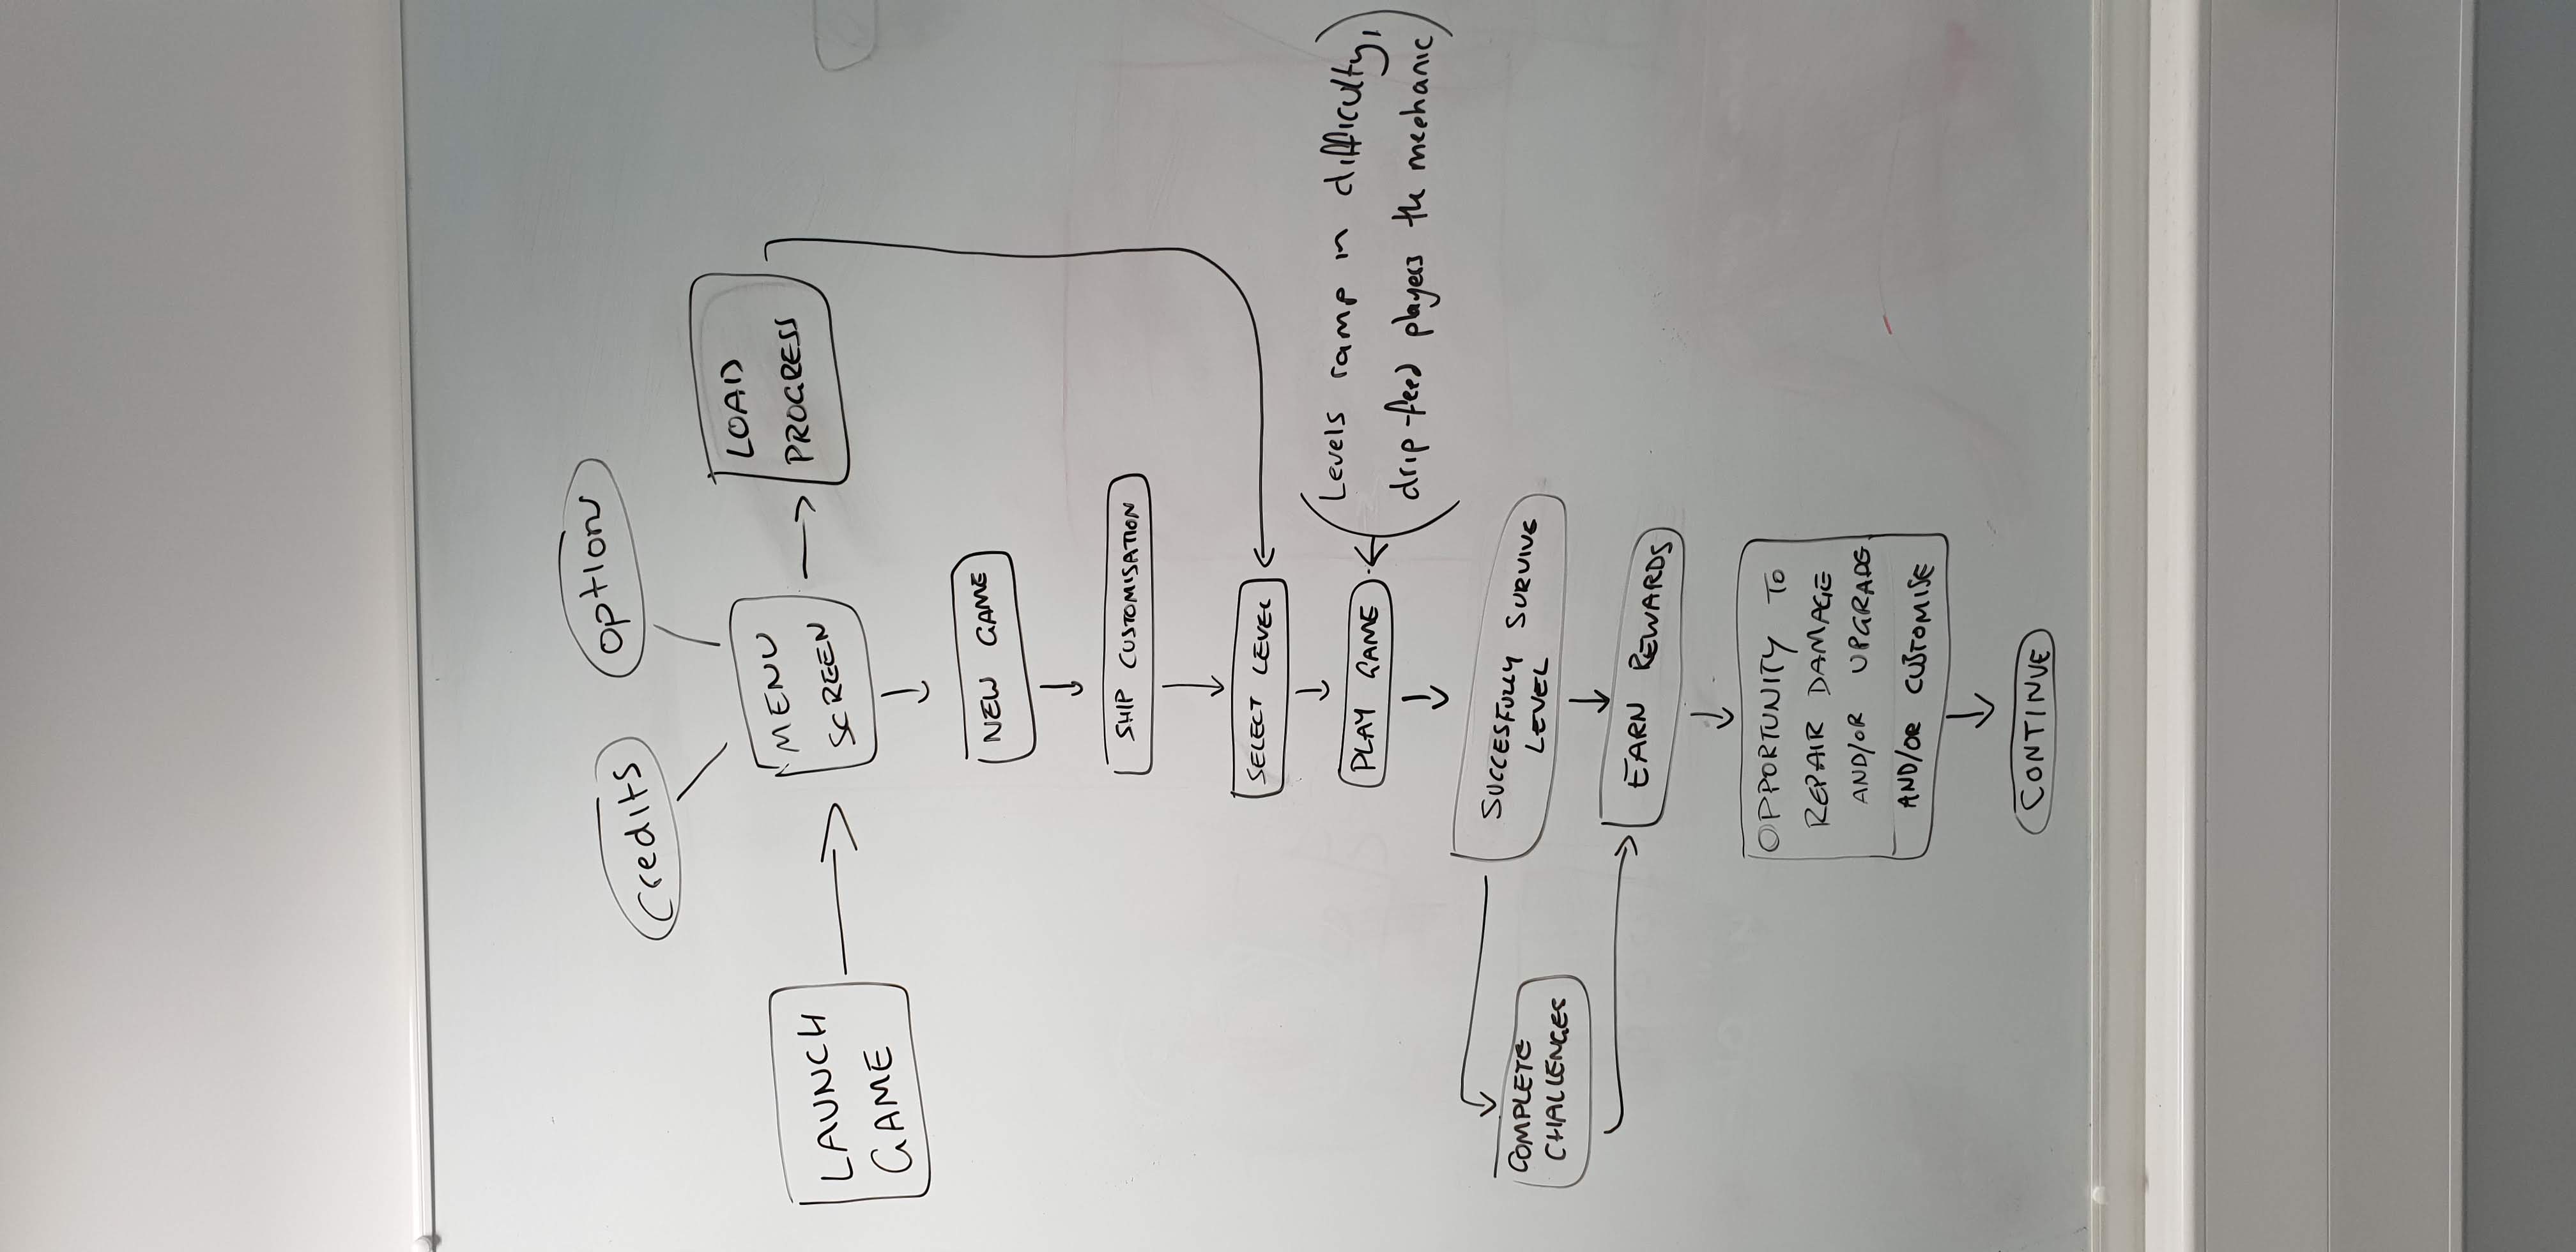 Credits
option
LAUNCH
GAME
MENU
SCREEN
LOAD
PROGRESS
NEW GAME
SHIP CUSTOMISATION
SELECT LEVEL
PLAY GAME
(Levels ramp in difficulty,
drip-feed players the mechanic)
SUCCESFULLY SURVIVE
LEVEL
COMPLETE
CHALLENGES
EARN REWARDS
OPPORTUNITY TO
REPAIR DAMAGE
AND/OR UPGRADE
AND/OR CUSTOMISE
CONTINUE